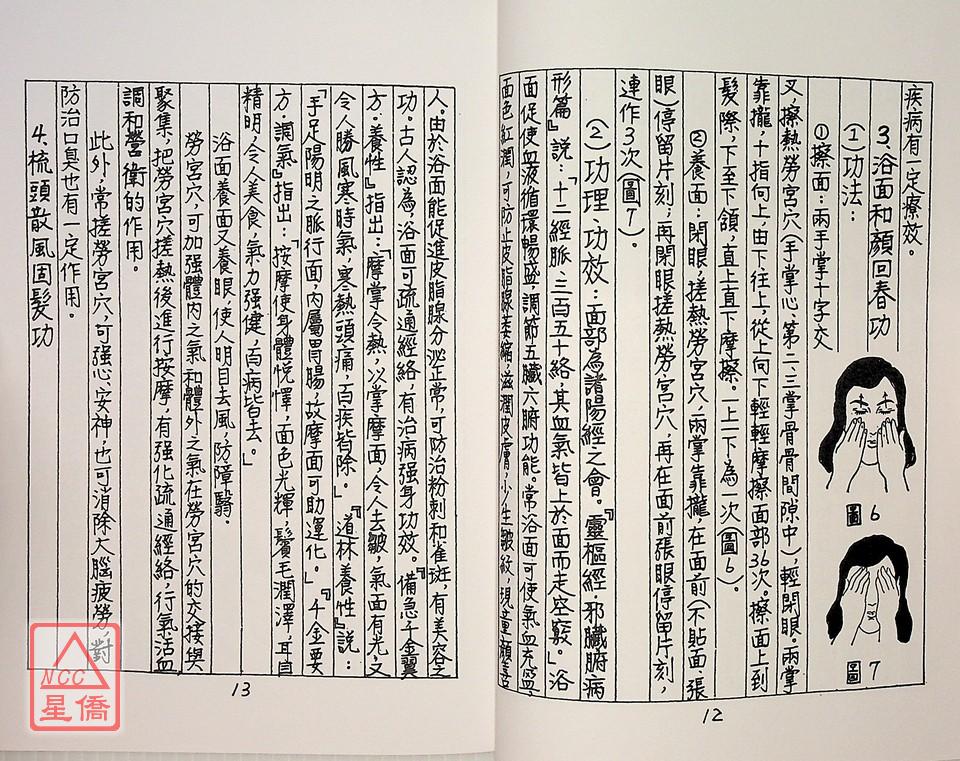 疾病有一定療效。
3.浴面和顏回春功
(1)功法：
①擦面：兩手掌十字交
叉，擦熱勞宮穴（手掌心、第二、三掌骨骨間隙中），輕閉眼。兩掌
靠攏，十指向上，由下往上，從上向下輕輕摩擦面部36次。擦面上到
髮際，下至下頜，直上直下摩擦。一上一下為一次（圖6）。
②養面：閉眼，搓熱勞宮穴，兩掌靠攏，在面前（不貼面張
眼）停留片刻；再閉眼搓熱勞宮穴，再在面前張眼停留片刻，
連作3次（圖7）。
(2)功理、功效：面部為諸陽經之會。『靈樞經·邪臟腑病
形篇』說：「十二經脈，三百五十絡，其血氣皆上於面而走空竅。」浴
面促使血液循環暢盛，調節五臟六腑功能。常浴面可使氣血充盈，
面色紅潤，可防止皮脂腺萎縮，滋潤皮膚，少生皺紋，現童顏
圖6
圖7
12
人。由於浴面能促進皮脂腺分泌正常，可防治粉刺和雀斑，有美容之
功。古人認為，浴面可疏通經絡，有治病強身功效。『備急千金翼
方·養性』指出：「摩掌令熱，以掌摩面，令人去皺，氣面有光，又
令人勝風寒時氣，寒熱頭痛，百疾皆除。」『道林養性』說：
「手足陽明之脈行面，內屬胃腸，故摩面可助運化。」『千金要
方·調氣』指出：「按摩使身體悅懌，面色光輝，鬢毛潤澤，耳目
精明，令人美食，氣力强健，百病皆去。」
浴面養面又養眼，使人明目去風，防障翳。
勞宮穴，可加强體內之氣和體外之氣在勞宮穴的交接與
聚集，把勞宮穴搓熱後進行按摩，有强化疏通經絡，行氣活血
調和營衛的作用。
此外，常搓勞宮穴，可強心、安神，也可消除大腦疲勞，對
防治口臭也有一定作用。
4.梳頭散風固髮功
13
NCC
星僑